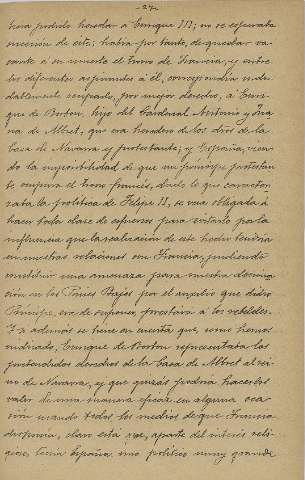 - 27 -
hera podido heredar á Enrique III; no se esperaba
sucesión de éste; habia por tanto, de quedar va-
cante á su muerte el trono de Francia, y entre
los diferentes aspirantes á él, correspondia indu-
dablemente ocuparlo, por mejor derecho, á Enri-
que de Borbon, hijo del Cardenal Antonio y Jua
na de Albret, que era heredero de los dros de la
casa de Navarra y protestante; y España, vien-
do la imposibilidad de que un príncipe protestan
te ocupara el trono francés, dado lo que caracteri
zaba la política de Felipe II, se veia obligada á
hacer toda clase de esfuerzos para evitarlo por la
influencia que la realización de este hecho tendria
en nuestras relaciones con Francia, pudiendo
constituir una amenaza para nuestra domina
ción en los Paises Bajos por el auxilio que dicho
Príncipe, era de suponer, prestara á los rebeldes.
Y si además se tiene en cuenta que, como hemos
indicado, Enrique de Borbon representaba los
pretendidos derechos de la casa de Albret al rei-
no de Navarra, y que quizás podria hacerlos
valer de una manera eficaz en alguna oca
sión usando todos los medios de que Francia
disponia, claro está que, aparte del interés reli-
gioso, tenia España uno político muy grande